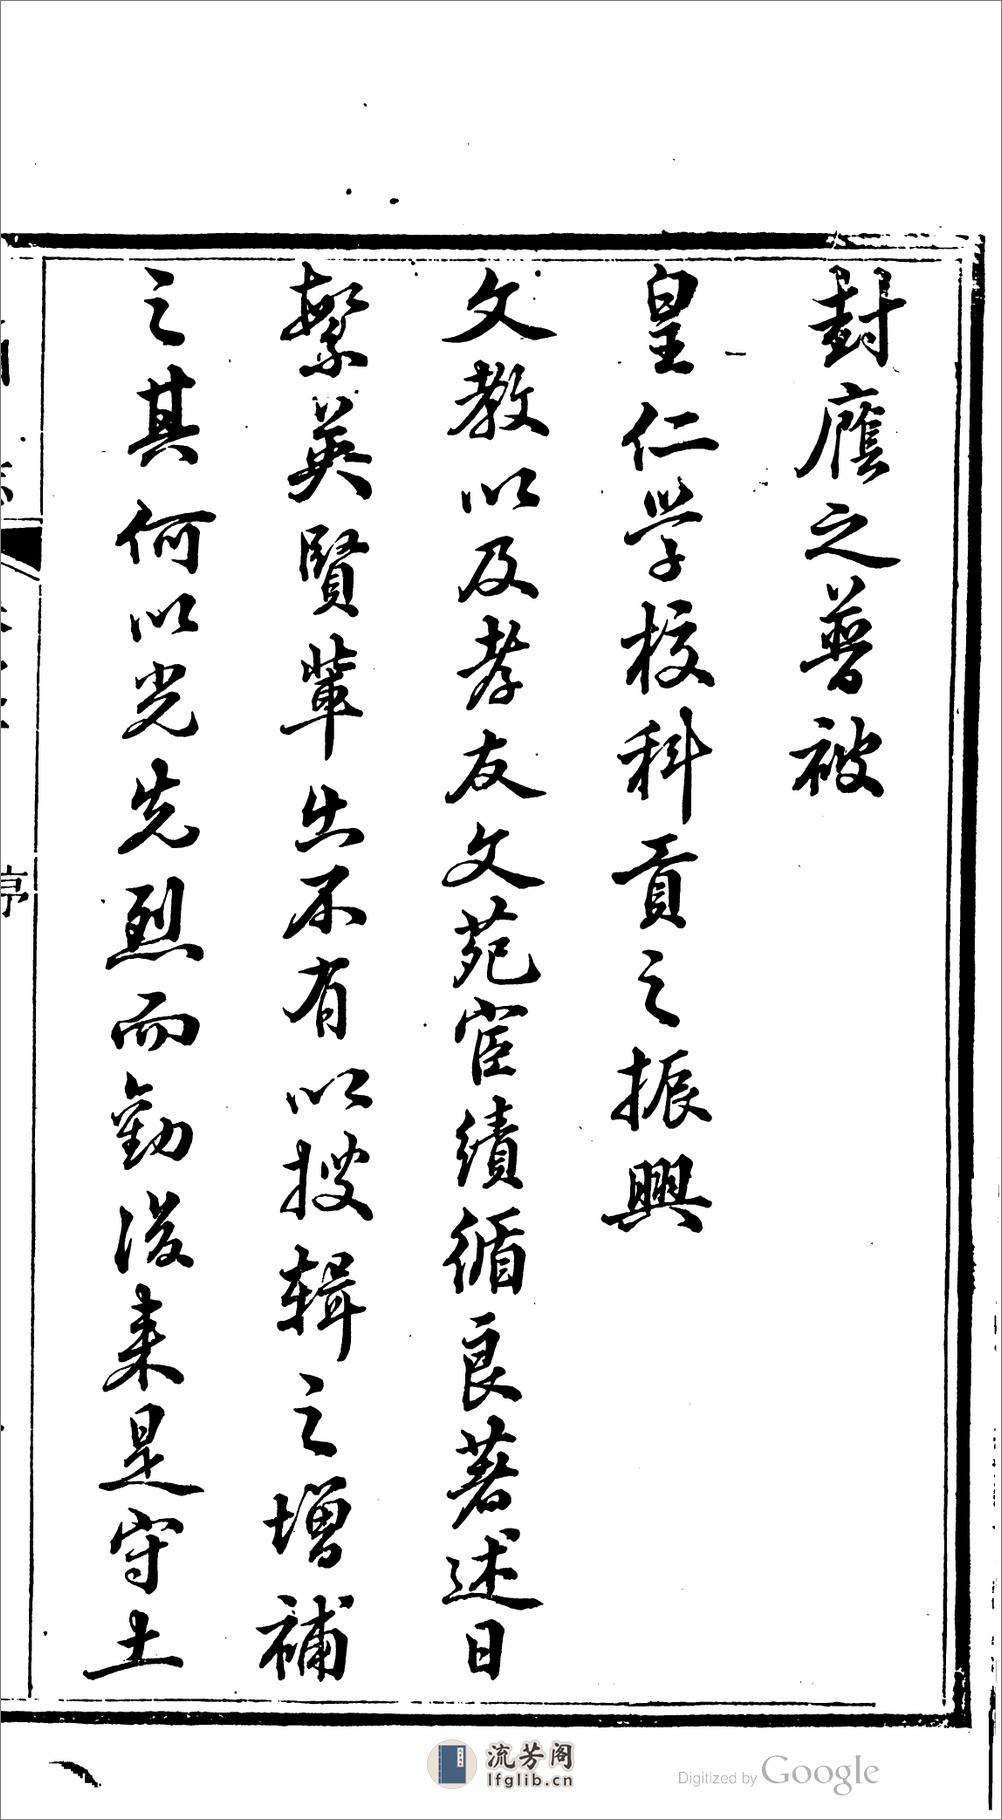 封廕之普被
皇仁學校科貢之振興
文教以及孝友文苑宦績循良著述日
繁英賢輩出不有以搜輯之增補
之其何以光先烈而勸後来是守土
序
流芳阁
lfglib.cn
Digitized by Google